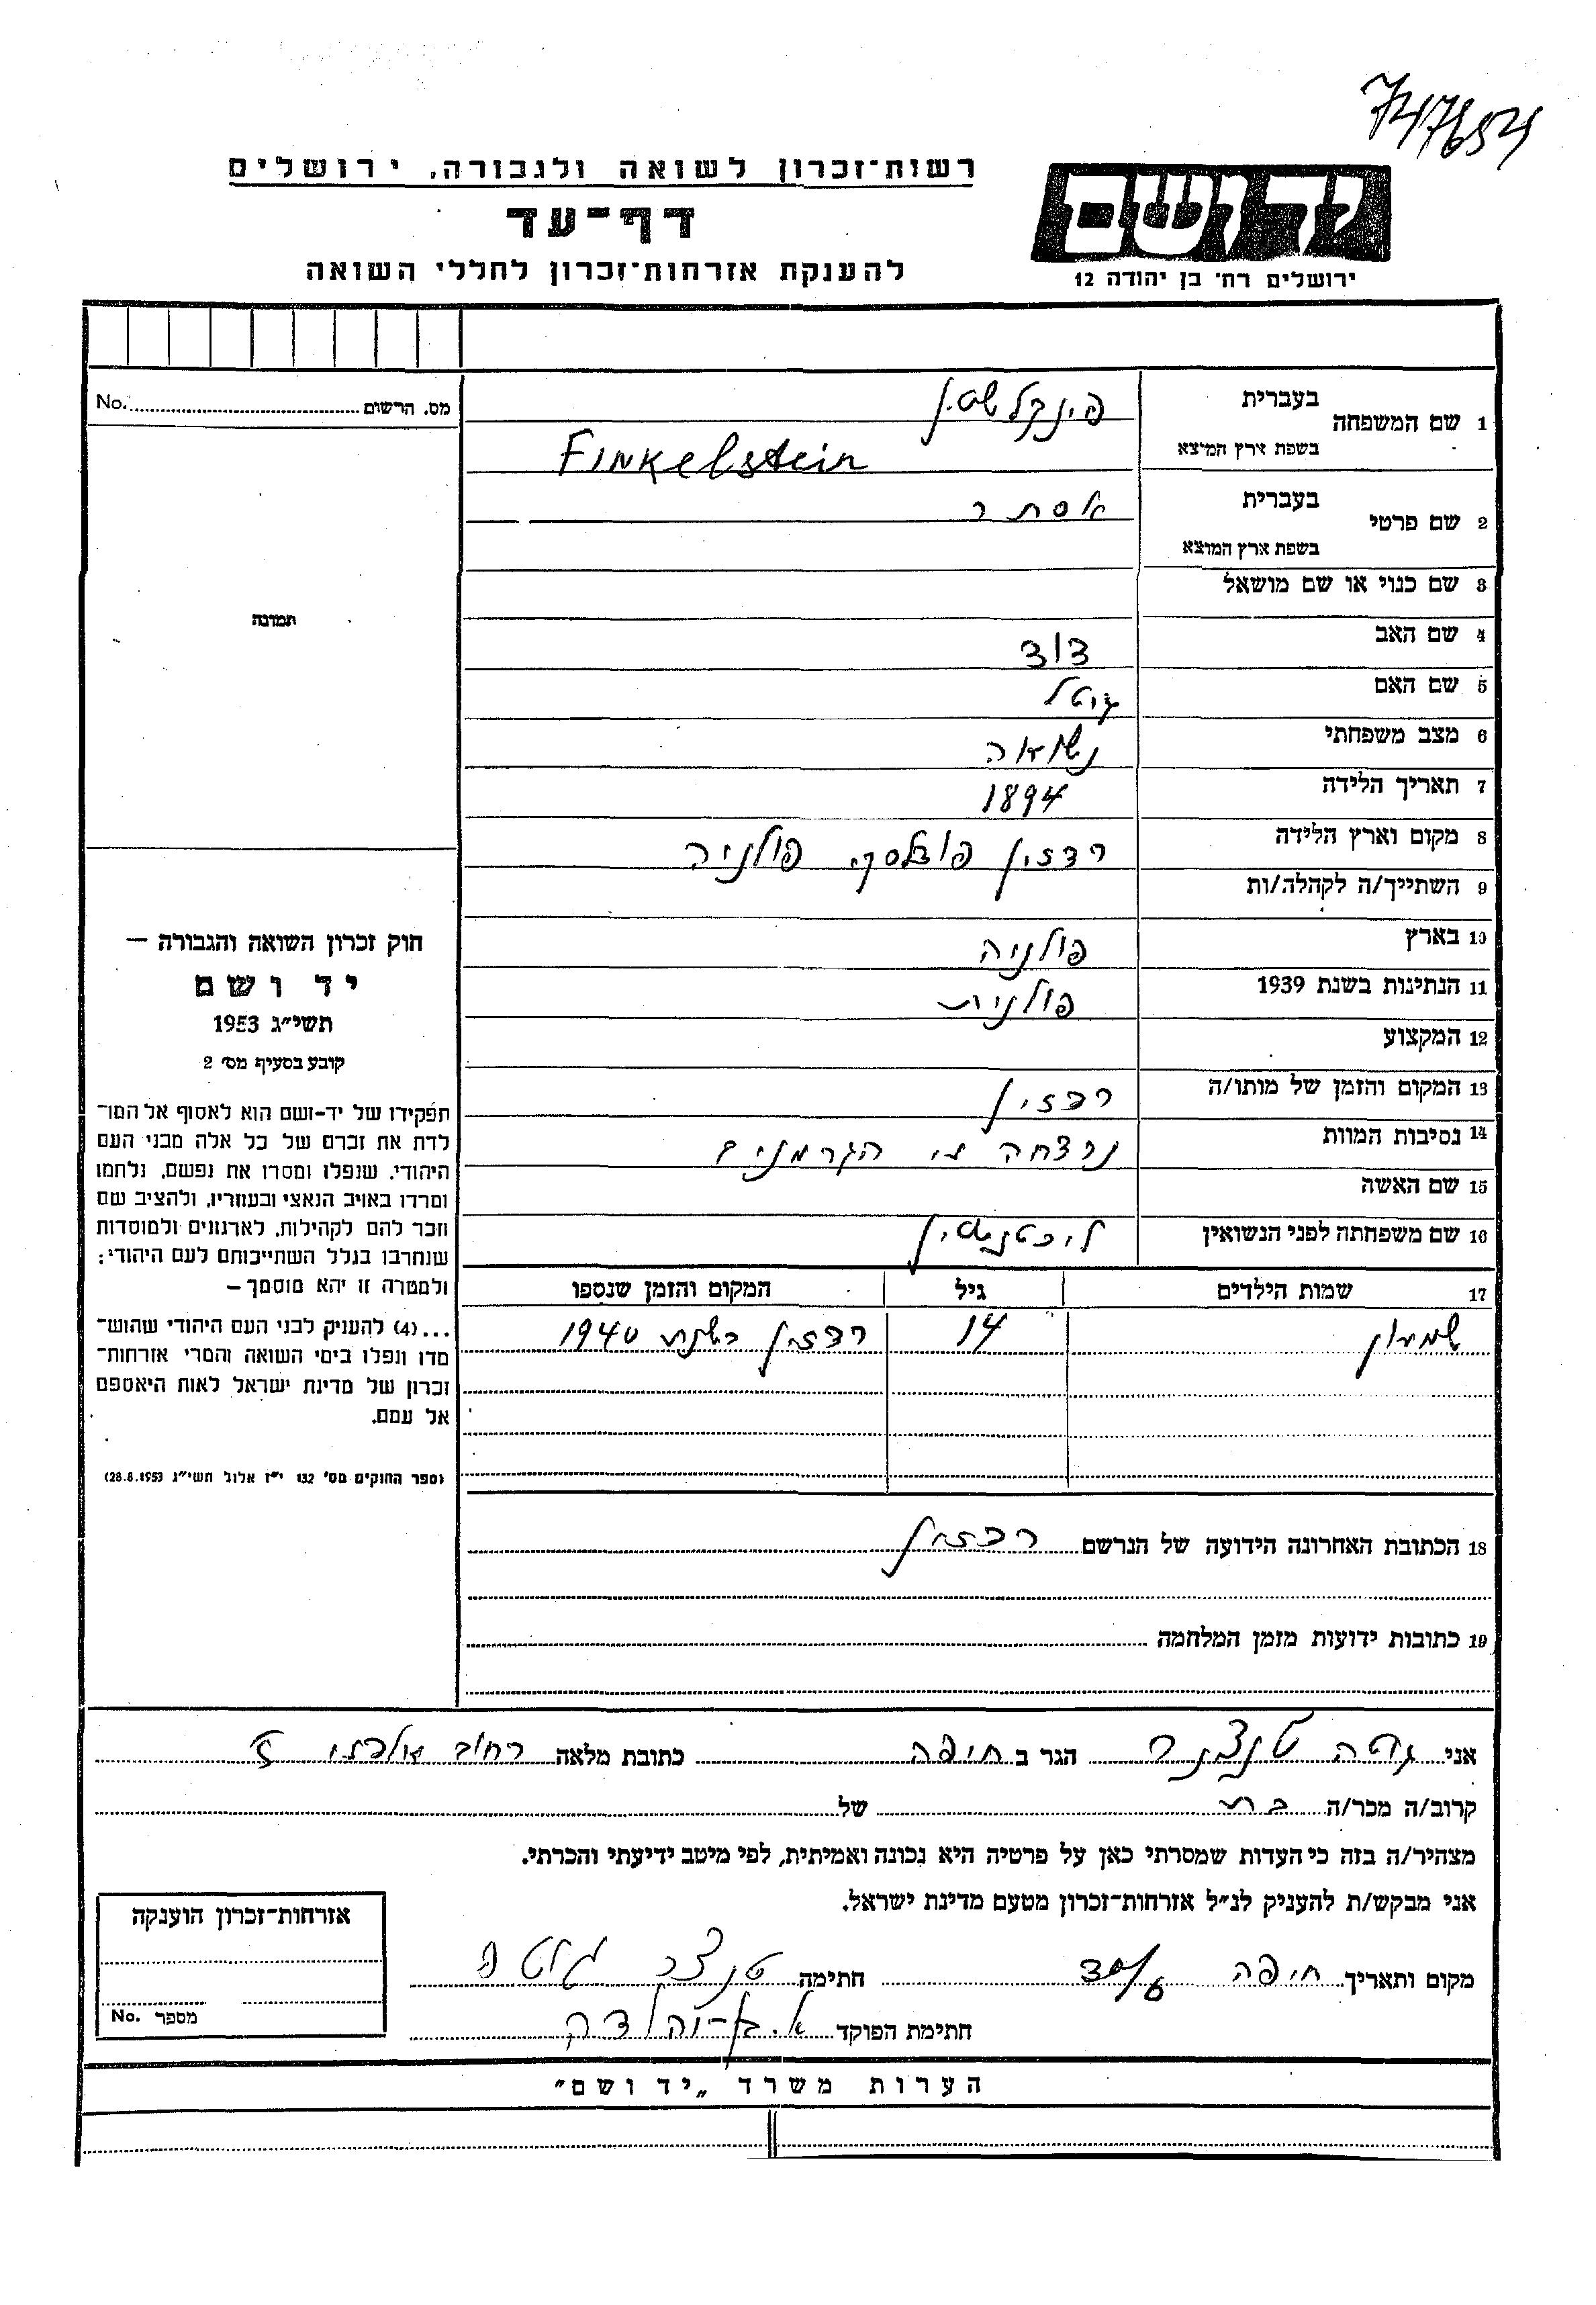 747654
רשות-זכרון לשואה ולגבורה, ירושלים
דף-עד
להענקת אזרחות-זכרון לחללי השואה
ידושם
ירושלים רח' בן יהודה 12
מס. הרשום No.
1 שם המשפחה בעברית פינקלשטין
בשפת ארץ המוצא Finkelstein
2 שם פרטי בעברית אסתר
בשפת ארץ המוצא
3 שם כנוי או שם מושאל
תמונה
4 שם האב דוד
5 שם האם גוטל
6 מצב משפחתי נשואה
7 תאריך הלידה 1894
8 מקום וארץ הלידה רדזין פודלסקי פולניה
9 השתייך/ה לקהלה/ות
10 בארץ פולניה
11 הנתינות בשנת 1939 פולנית
12 המקצוע
13 המקום והזמן של מותו/ה רדזין
14 נסיבות המוות נרצחה ע״י הגרמנים
15 שם האשה
16 שם משפחתה לפני הנשואין ליכטנשטין
17 שמות הילדים גיל המקום והזמן שנספו
שמעון 14 רדזין בשנת 1940
חוק זכרון השואה והגבורה –
יד ושם
תשי״ג 1953
קובע בסעיף מס' 2
תפקידו של יד-ושם הוא לאסוף אל המו-
לדת את זכרם של כל אלה מבני העם
היהודי, שנפלו ומסרו את נפשם, נלחמו
ומרדו באויב הנאצי ובעוזריו, ולהציב שם
וזכר להם לקהילות, לארגונים ולמוסדות
שנחרבו בגלל השתייכותם לעם היהודי;
ולמטרה זו יהא מוסמך –
...(4) להעניק לבני העם היהודי שהוש-
מדו ונפלו בימי השואה והמרי אזרחות-
זכרון של מדינת ישראל לאות היאספם
אל עמם.
(ספר החוקים מס' 132 י״ז אלול תשי״ג 28.8.1953)
18 הכתובת האחרונה הידועה של הנרשם רדזין
19 כתובות ידועות מזמן המלחמה
אני גוטה טנצר הגר ב חיפה כתובת מלאה רחוב
קרוב/ה מכר/ה בת של
מצהיר/ה בזה כי העדות שמסרתי כאן על פרטיה היא נכונה ואמיתית, לפי מיטב ידיעתי והכרתי.
אני מבקש/ת להעניק לנ״ל אזרחות-זכרון מטעם מדינת ישראל.
מקום ותאריך חיפה חתימה טנצר
חתימת הפוקד
אזרחות-זכרון הוענקה
מספר No.
הערות משרד „יד ושם״